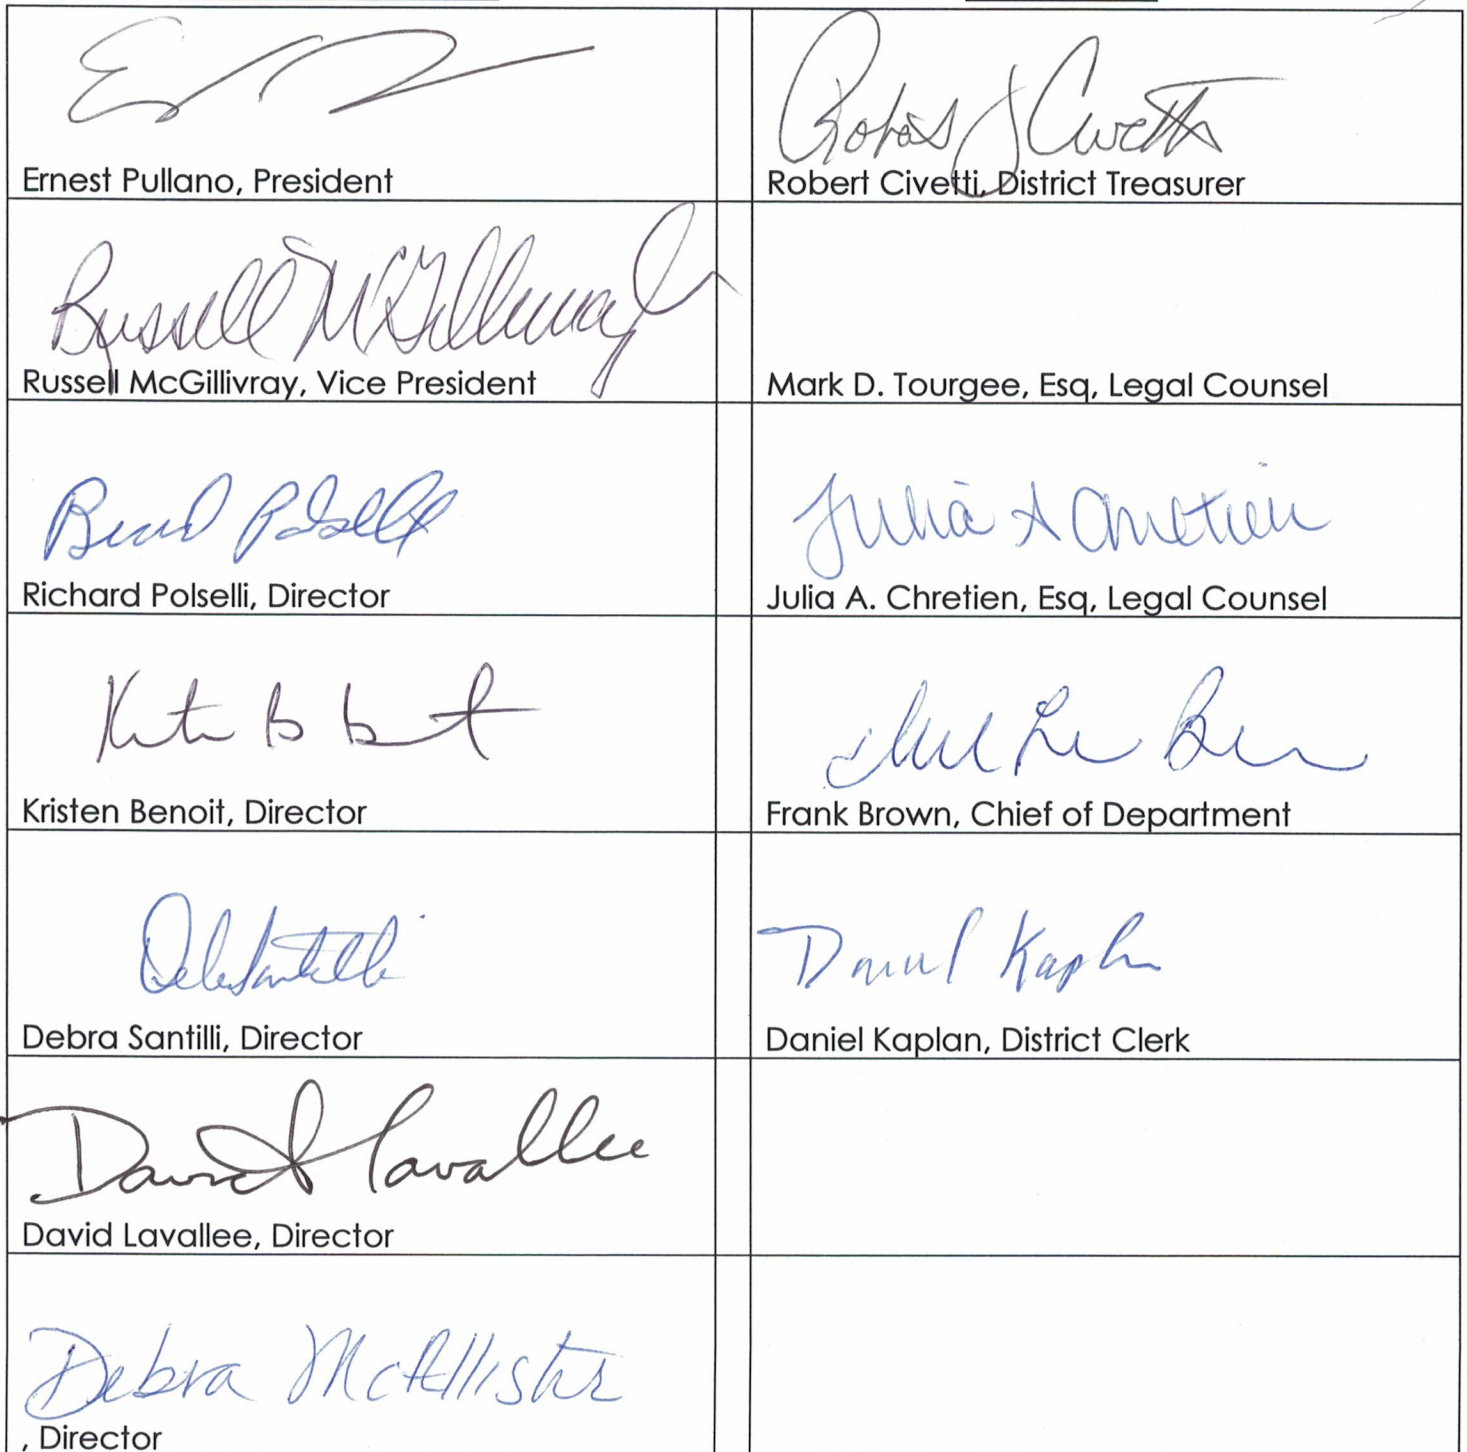 Ernest Pullano, President
Robert J Civetti
Robert Civetti, District Treasurer
Russell McGillivray
Russell McGillivray, Vice President
Mark D. Tourgee, Esq, Legal Counsel
Richard Polselli, Director
Julia A Chretien
Julia A. Chretien, Esq, Legal Counsel
Kristen Benoit, Director
Frank Brown, Chief of Department
Deb Santilli
Debra Santilli, Director
Daniel Kaplan
Daniel Kaplan, District Clerk
David Lavallee
David Lavallee, Director
Debra McAllister
, Director